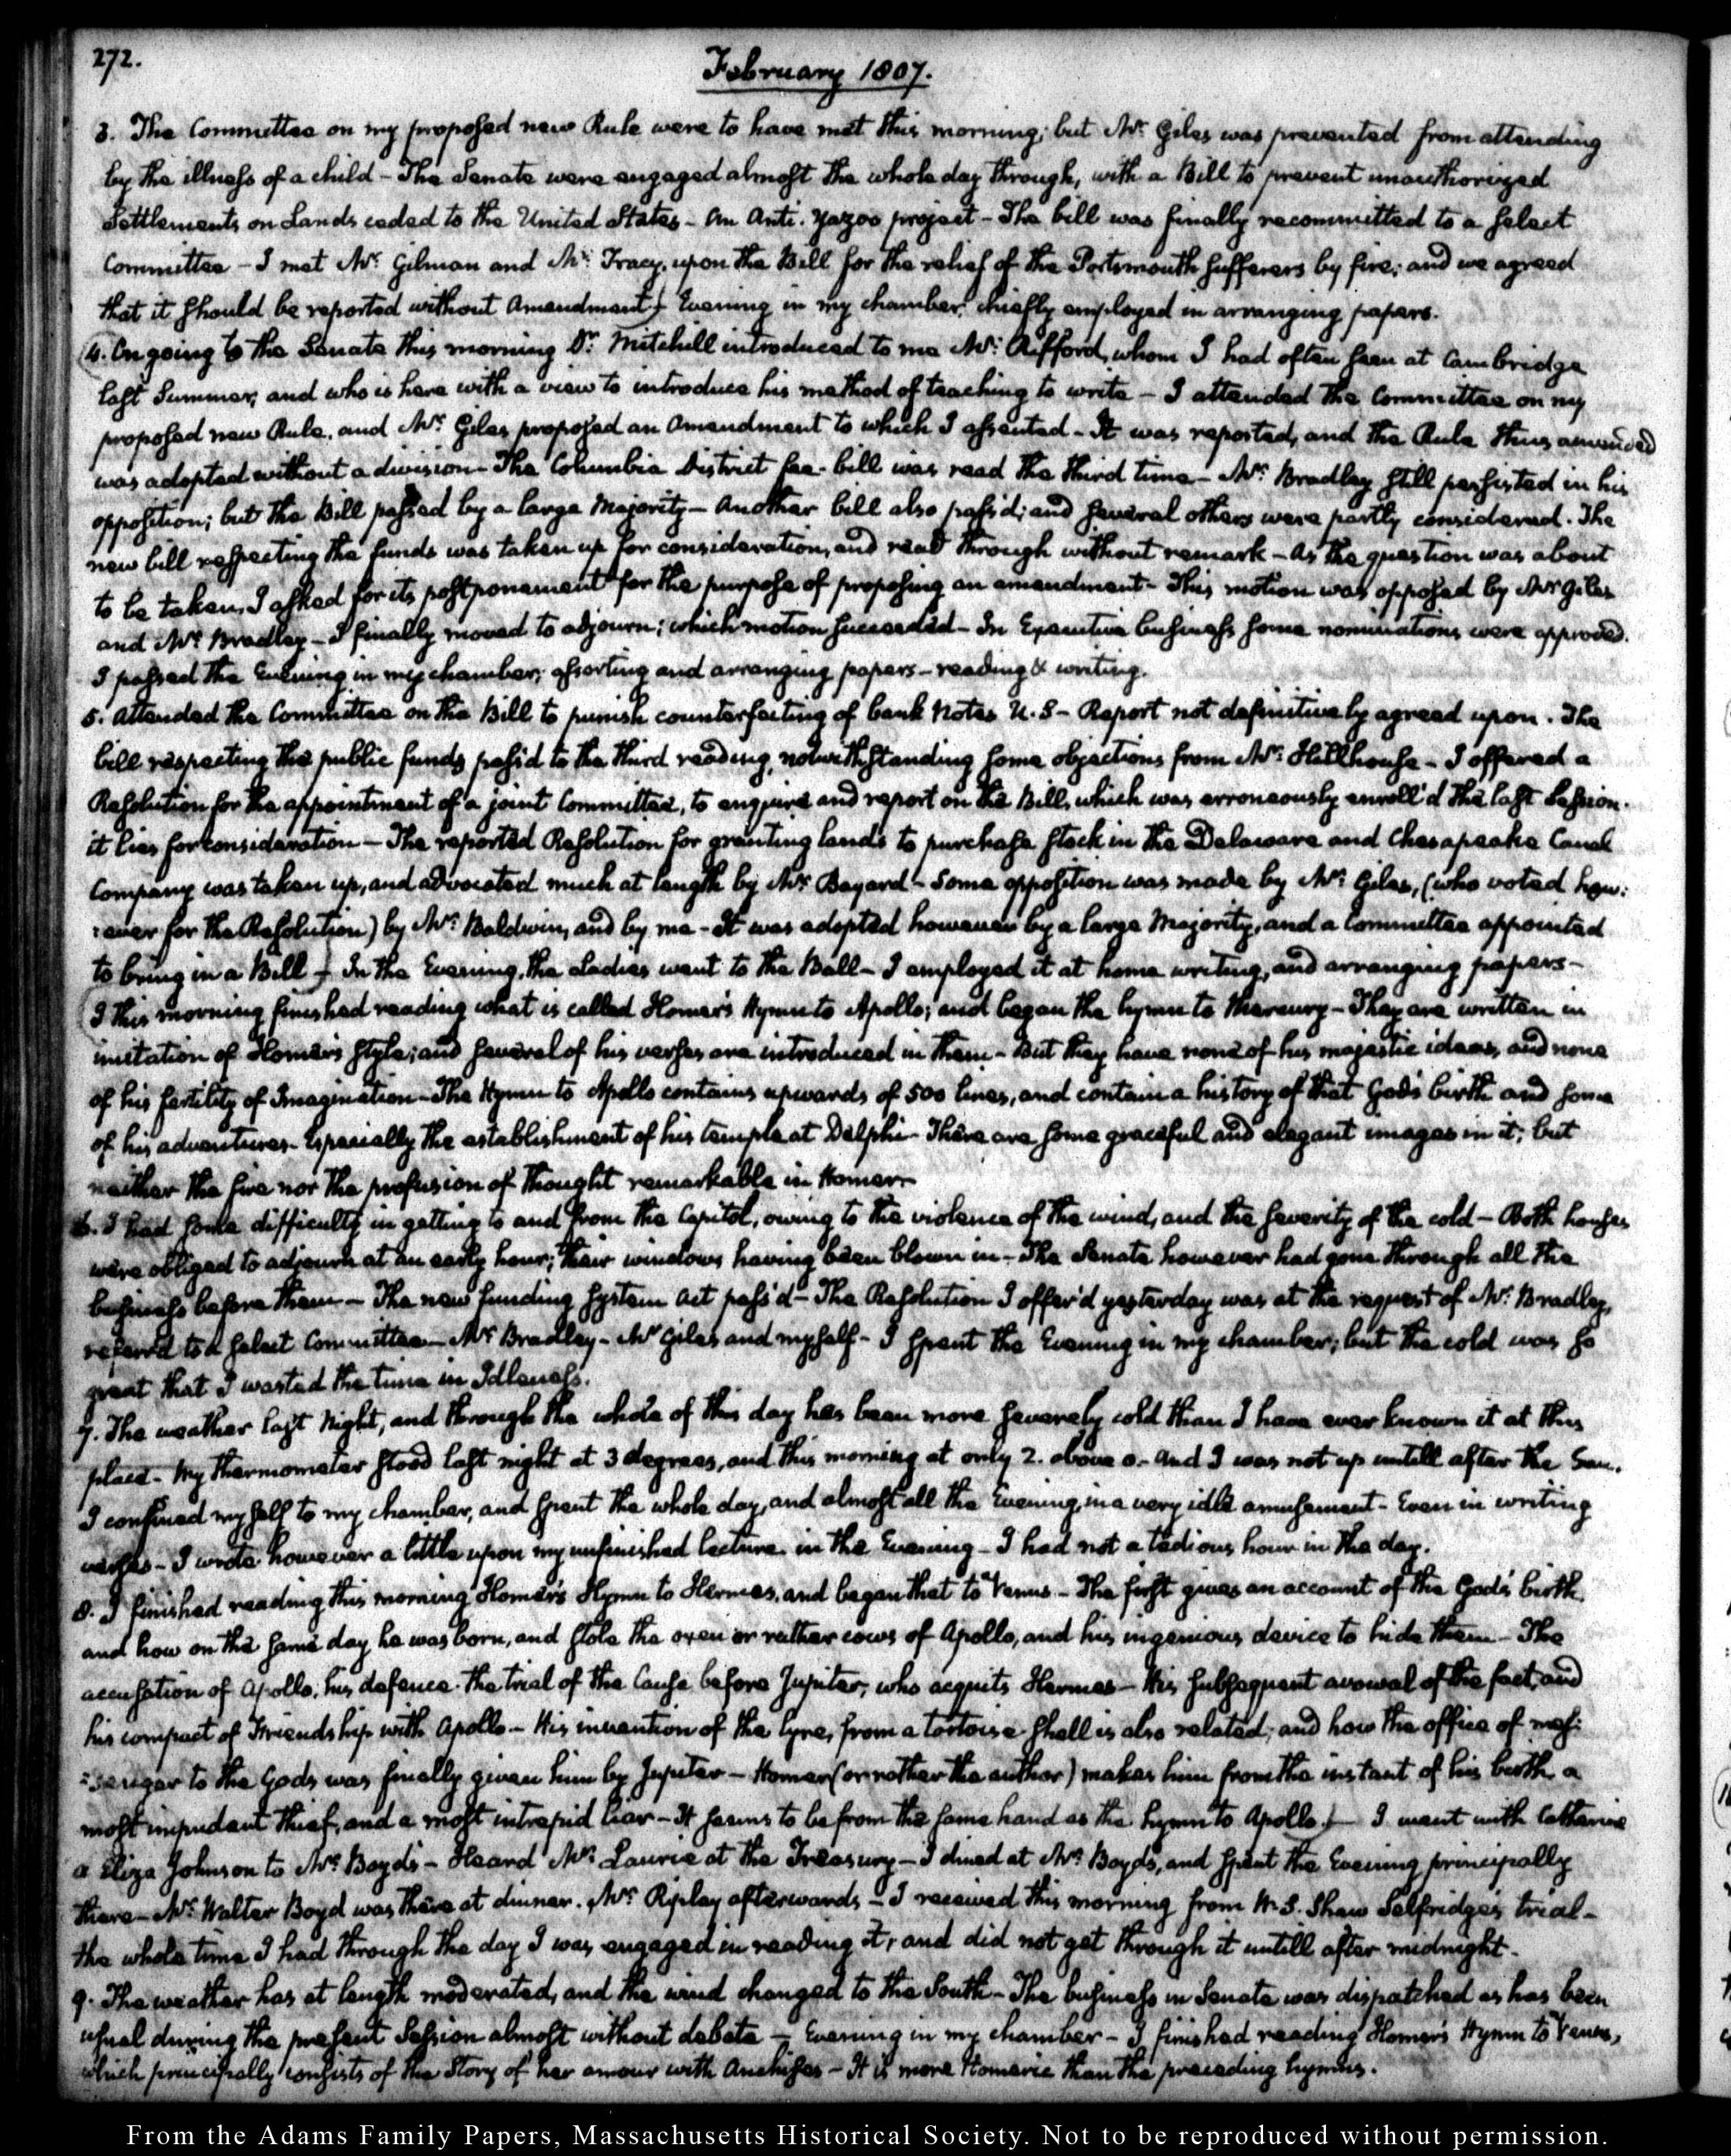 272.
February 1807.
3. The Committee on my proposed new Rule were to have met this morning; but Mr: Giles was prevented from attending
by the illness of a child - The Senate were engaged almost the whole day through, with a Bill to prevent unauthorized
Settlements on Lands ceded to the United States - An Anti-Yazoo project - The bill was finally recommitted to a select
Committee - I met Mr: Gilman and Mr: Tracy, upon the Bill for the relief of the Portsmouth sufferers by fire; and we agreed
that it should be reported without Amendment - Evening in my chamber, chiefly employed in arranging papers.
4. On going to the Senate this morning Dr: Mitchill introduced to me Mr: Rifford, whom I had often seen at Cambridge
last Summer, and who is here with a view to introduce his method of teaching to write - I attended the Committee on my
proposed new Rule, and Mr: Giles proposed an Amendment to which I assented - It was reported, and the Rule thus amended
was adopted without a division - The Columbia District fee-bill was read the third time - Mr: Bradley still persisted in his
opposition; but the Bill passed by a large Majority - Another bill also pass'd; and several others were partly considered. The
new bill respecting the funds was taken up for consideration, and read through without remark - As the question was about
to be taken, I asked for its postponement for the purpose of proposing an amendment - This motion was opposed by Mr Giles
and Mr: Bradley - I finally moved to adjourn; which motion succeeded - In Executive business some nominations were approved.
I passed the Evening in my chamber; assorting and arranging papers - reading & writing.
5. Attended the Committee on the Bill to punish counterfeiting of bank Notes U.S - Report not definitively agreed upon. The
bill respecting the public funds pass'd to the third reading, notwithstanding some objections from Mr: Hillhouse - I offered a
Resolution for the appointment of a joint Committee, to enquire and report on the Bill, which was erroneously enroll'd the last Session.
it lies for consideration - The reported Resolution for granting lands to purchase stock in the Delaware and Chesapeake Canal
Company was taken up, and advocated much at length by Mr Bayard - Some opposition was made by Mr: Giles, (who voted how:
:ever for the Resolution) by Mr: Baldwin, and by me - It was adopted however by a large Majority, and a Committee appointed
to bring in a Bill - In the Evening, the Ladies went to the Ball - I employed it at home writing, and arranging papers -
I this morning finished reading what is called Homer's Hymn to Apollo; and began the hymn to Mercury - They are written in
imitation of Homer's style; and several of his verses are introduced in them - But they have none of his majestic ideas, and none
of his fertility of Imagination - The Hymn to Apollo contains upwards of 500 lines, and contain a history of that God's birth and some
of his adventures - Especially the establishment of his temple at Delphi - There are some graceful and elegant images in it; but
neither the fire nor the profusion of thought remarkable in Homer -
6. I had some difficulty in getting to and from the Capitol, owing to the violence of the wind, and the severity of the cold - Both houses
were obliged to adjourn at an early hour; their windows having been blown in - The Senate however had gone through all the
business before them - The new funding system Act pass'd - The Resolution I offer'd yesterday was at the request of Mr: Bradley,
referred to a select Committee - Mr Bradley - Mr Giles and myself - I spent the Evening in my chamber; but the cold was so
great that I wasted the time in Idleness.
7. The weather last Night, and through the whole of this day has been more severely cold than I have ever known it at this
place - My thermometer stood last night at 3 degrees, and this morning at only 2. above 0 - And I was not up untill after the Sun.
I confined myself to my chamber, and spent the whole day, and almost all the Evening, in a very idle amusement - Even in writing
verses - I wrote however a little upon my unfinished lecture in the Evening - I had not a tedious hour in the day.
8. I finished reading this morning Homer's Hymn to Hermes, and began that to Venus - The first gives an account of the God's birth,
and how on the same day he was born, and stole the oxen or rather cows of Apollo, and his ingenious device to hide them - The
accusation of Apollo, his defence - the trial of the Cause before Jupiter, who acquits Hermes - His subsequent avowal of the fact, and
his compact of Friendship with Apollo - His invention of the lyre, from a tortoise shell is also related; and how the office of mes:
:senger to the Gods was finally given him by Jupiter - Homer (or rather the author) makes him from the instant of his birth, a
most impudent thief, and a most intrepid liar - It seems to be from the same hand as the hymn to Apollo - I went with Catherine
& Eliza Johnson to Mrs. Boyd's - Heard Mr: Laurie at the Treasury - I dined at Mrs Boyd's, and spent the Evening principally
there - Mr: Walter Boyd was there at dinner. Mr: Ripley afterwards - I received this morning from W. S. Shaw Selfridge's trial -
the whole time I had through the day I was engaged in reading it, and did not get through it untill after midnight -
9. The weather has at length moderated, and the wind changed to the South - The business in Senate was dispatched as has been
usual during the present Session almost without debate - Evening in my chamber - I finished reading Homer's Hymn to Venus,
which principally consists of the Story of her amour with Anchises - It is more Homeric than the preceding hymns.
From the Adams Family Papers, Massachusetts Historical Society. Not to be reproduced without permission.